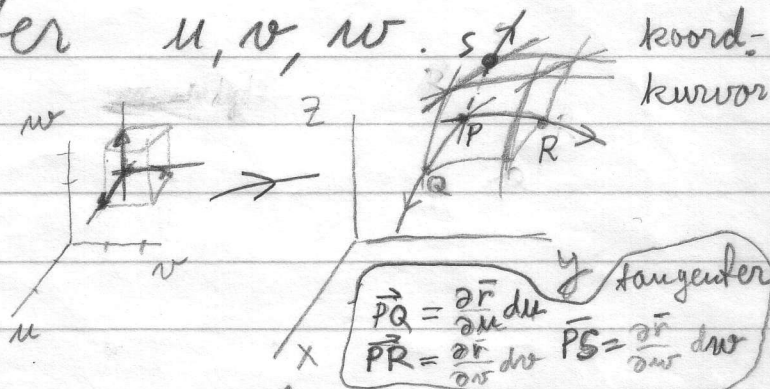 er u, v, w. S koord-
kurvor
w Z
P R
Q
v y tangenter
u x
P⃗Q = ∂r̄/∂u du
P⃗R = ∂r̄/∂v dv P̄S = ∂r̄/∂w dw